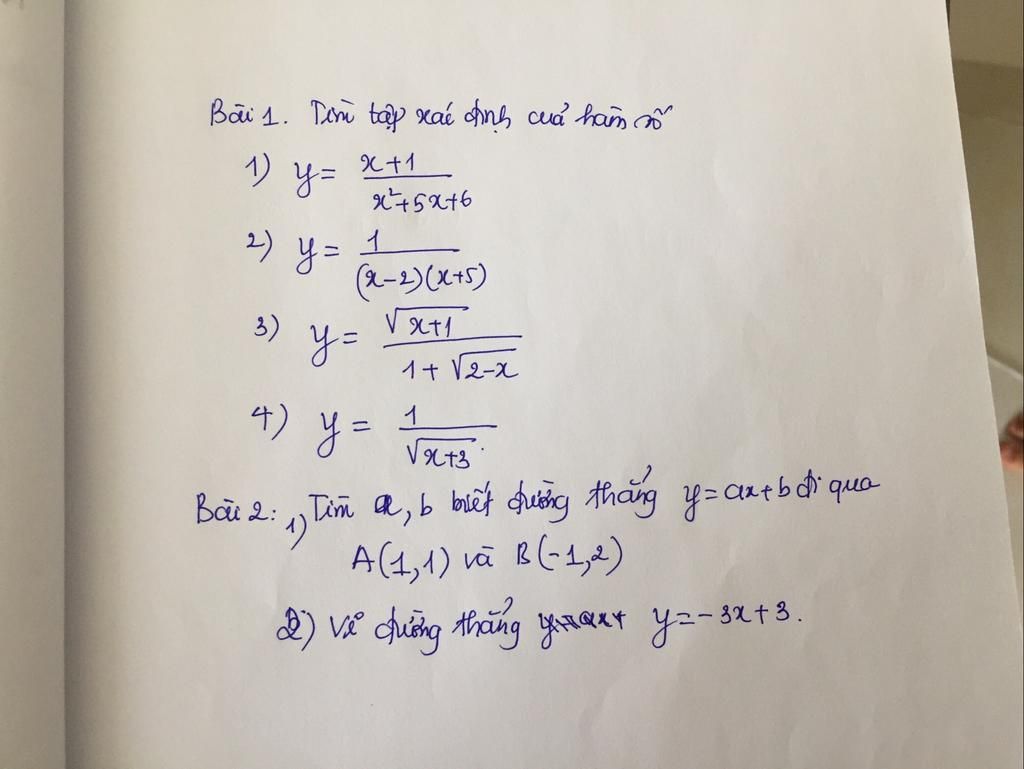 Bài 1. Tìm tập xác định của hàm số
1) y = \frac{x+1}{x²+5x+6}
2) y = \frac{1}{(x-2)(x+5)}
3) y = \frac{\sqrt{x+1}}{1+\sqrt{2-x}}
4) y = \frac{1}{\sqrt{x+3}}
Bài 2: 1) Tìm a, b biết đường thẳng y=ax+b đi qua
A(1,1) và B(-1,2)
2) Vẽ đường thẳng y=-3x+3.